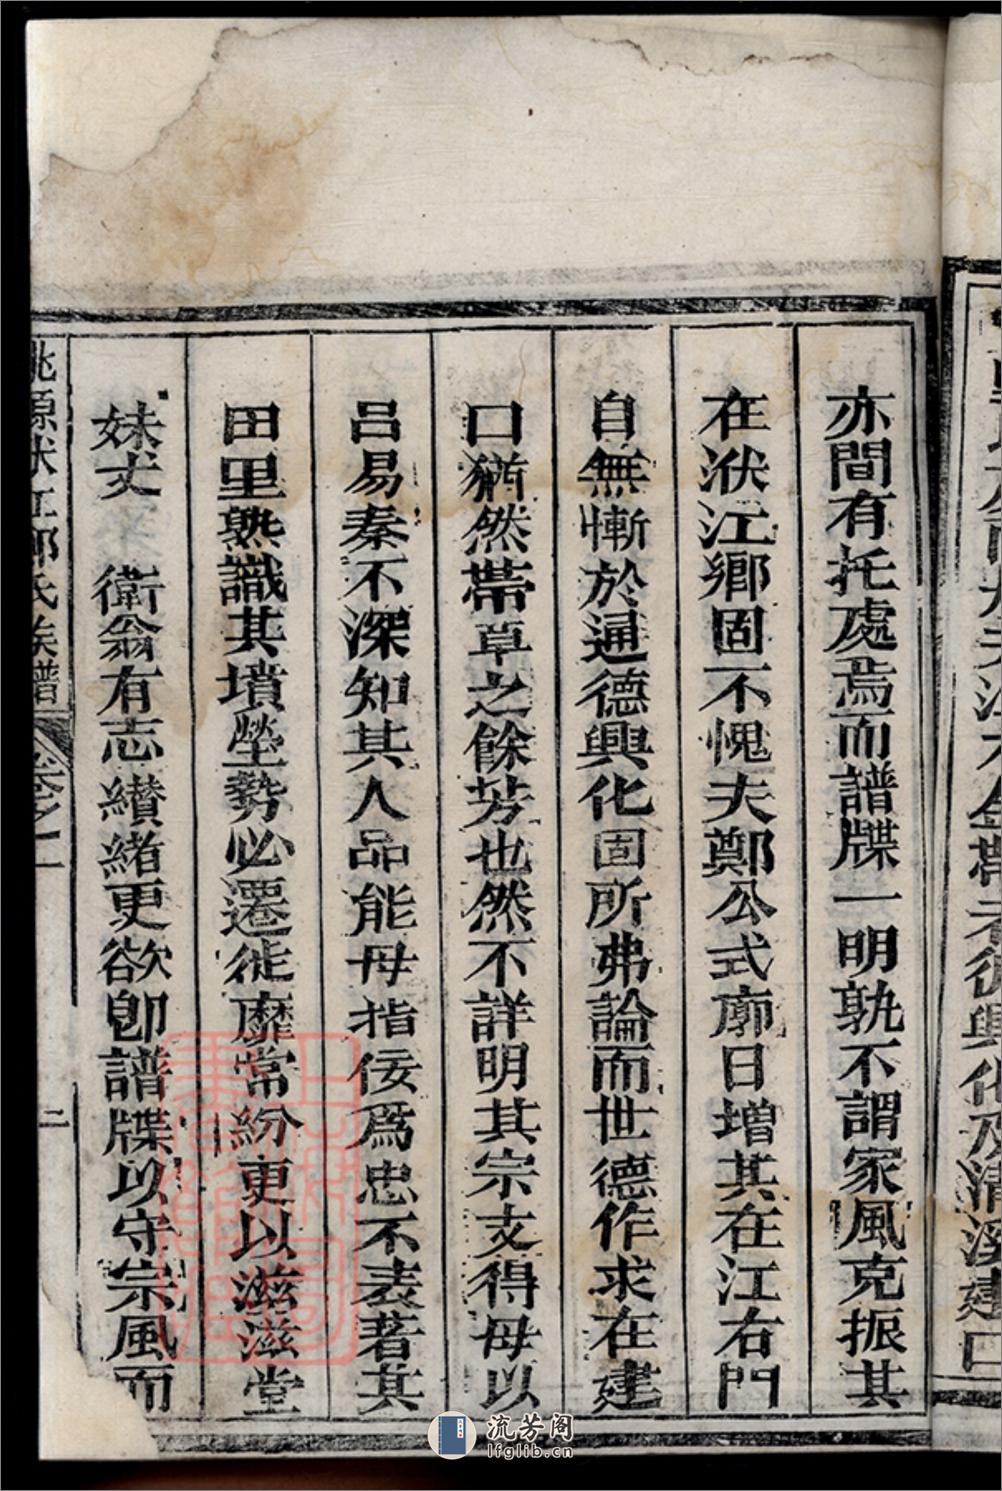 亦間有托處焉而譜牒一明孰不謂家風克振其
在洑江鄉固不愧夫鄭公式廓日增其在江右門
自無慚於通德興化固所弗論而世德作求在建
口猶然帶草之餘芳也然不詳明其宗支得毋以
呂易秦不深知其人品能毋指佞爲忠不表著其
田里熟識其墳塋勢必遷徙靡常紛更以滋滋堂
妹丈 衛翁有志纘緒更欲卽譜牒以守宗風而
桃源洑江鄭氏族譜 卷之一 二
流芳阁
lfglib.cn